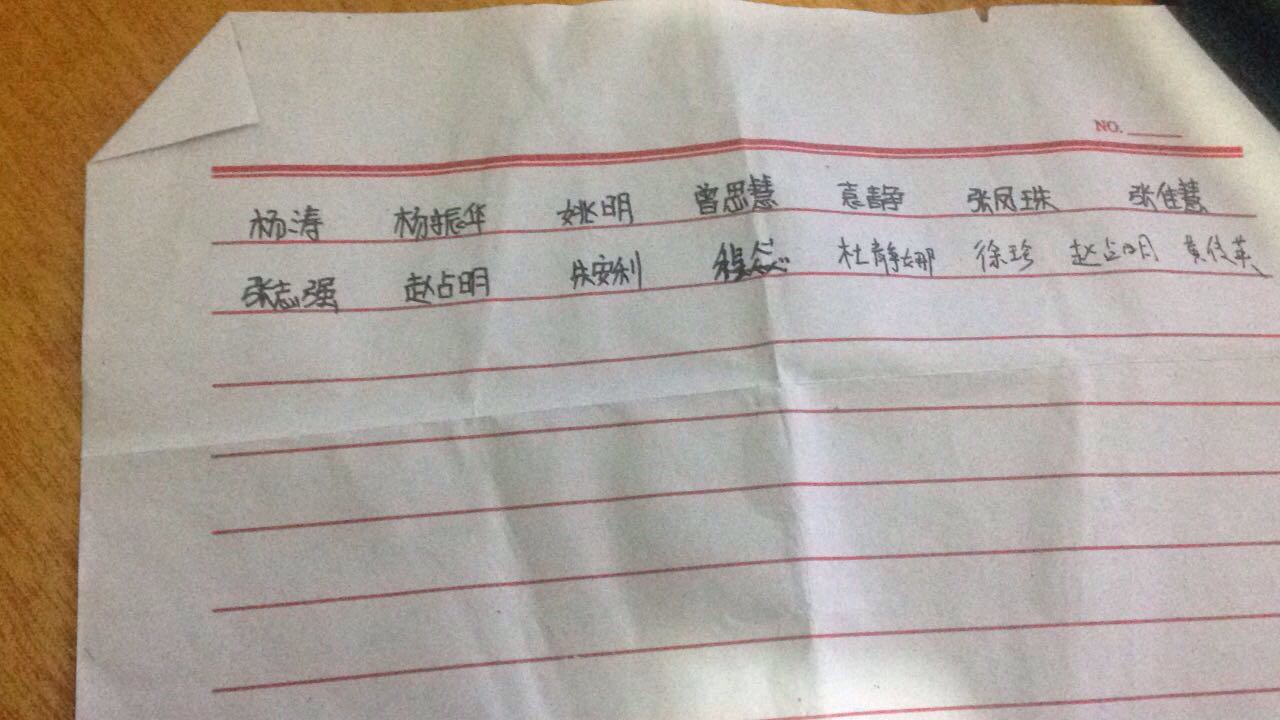 NO.
杨涛 杨振华 姚明 曾思慧 袁静 张凤珠 张佳慧
张志强 赵占明 朱安利 杜静娜 徐珍 赵占明 黄俊英